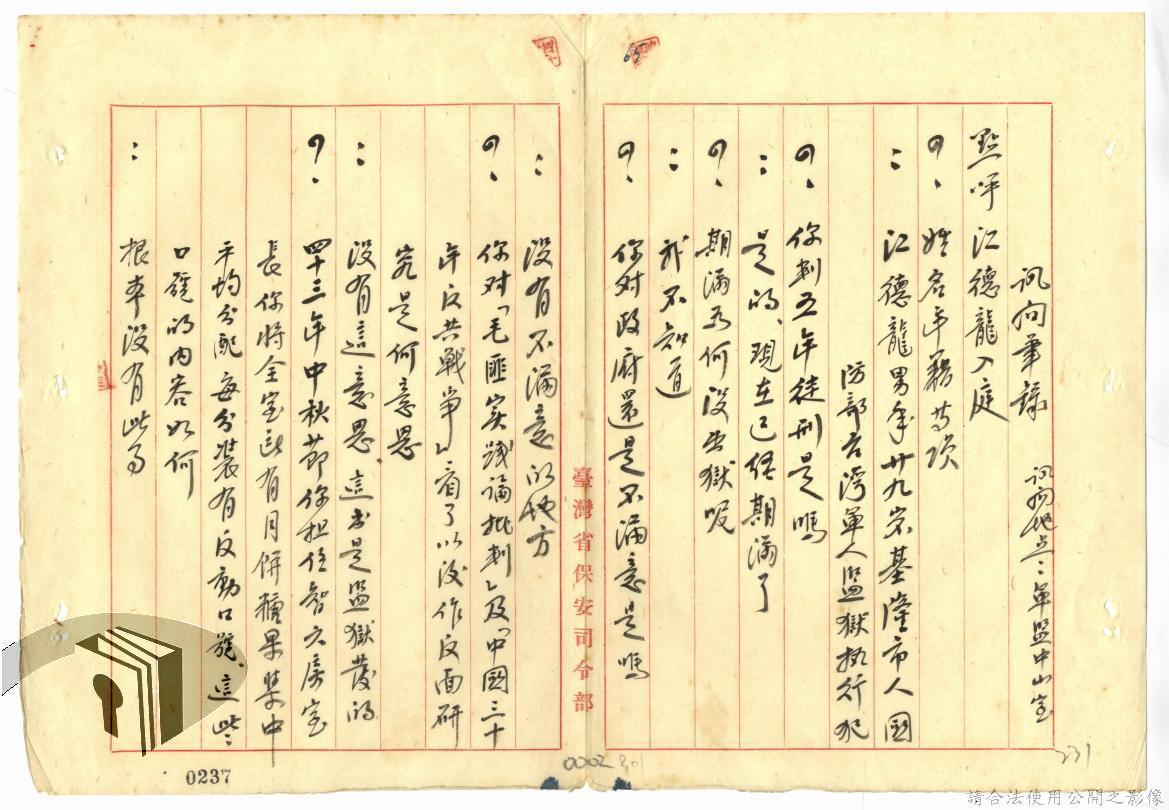 訊問筆錄　訊問地点：軍監中山室
點呼　江德龍入庭
？、姓名年籍等項
：江德龍男年廿九岁基隆市人國
防部台灣軍人監獄执行犯
？、你判五年徒刑是嗎
：是的、現在已経期滿了
？、期滿为何没出獄呢
：我不知道
？、你对政府還是不滿意是嗎
臺灣省保安司令部
：没有不滿意的地方
？、你对「毛匪实踐論批判」及「中國三十
年反共戰爭」看了以後作反面研
究是何意思
：没有這意思、這书是監獄發的
？、四十三年中秋节你担任智六房室
長你将全室所有月餅糖果集中
平均分配每分装有反動口號、這些
口號的内容如何
：根本没有此事
0237
231
請合法使用公開之影像